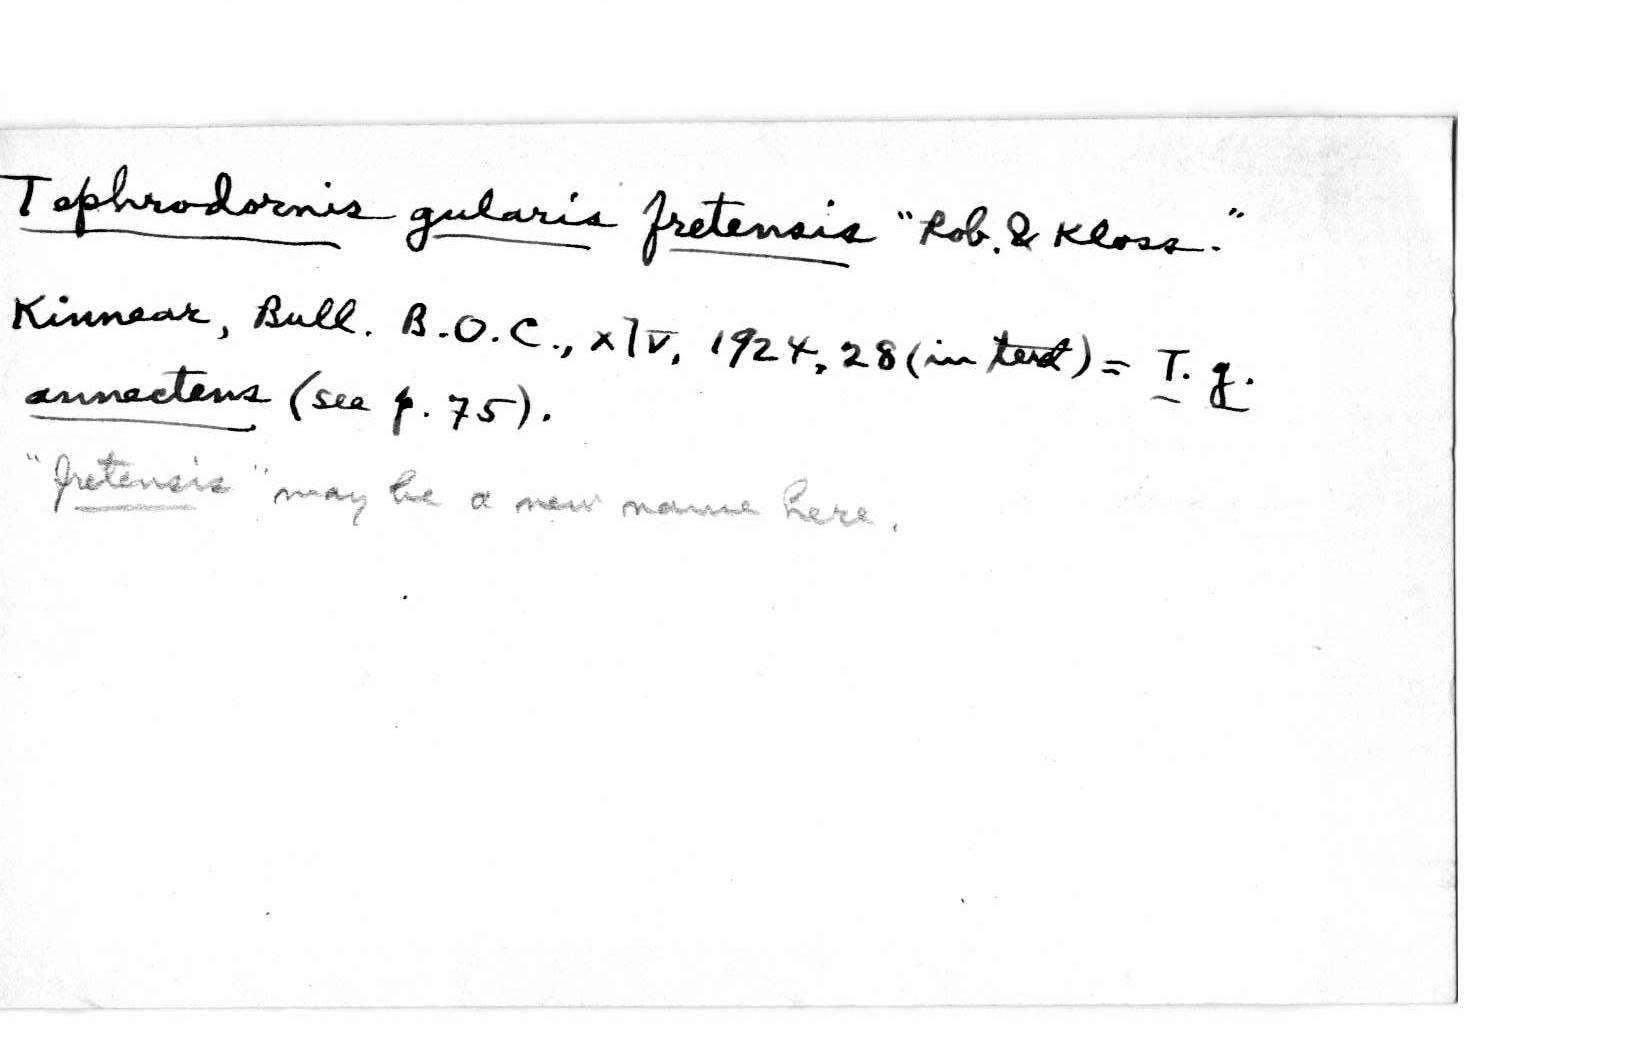 Tephrodornis gularis fretensis "Rob. & Kloss."
Kinnear, Bull. B.O.C., xlv, 1924, 28 (in text) = T. g.
annectens (see p. 75).
"fretensis" may be a new name here.